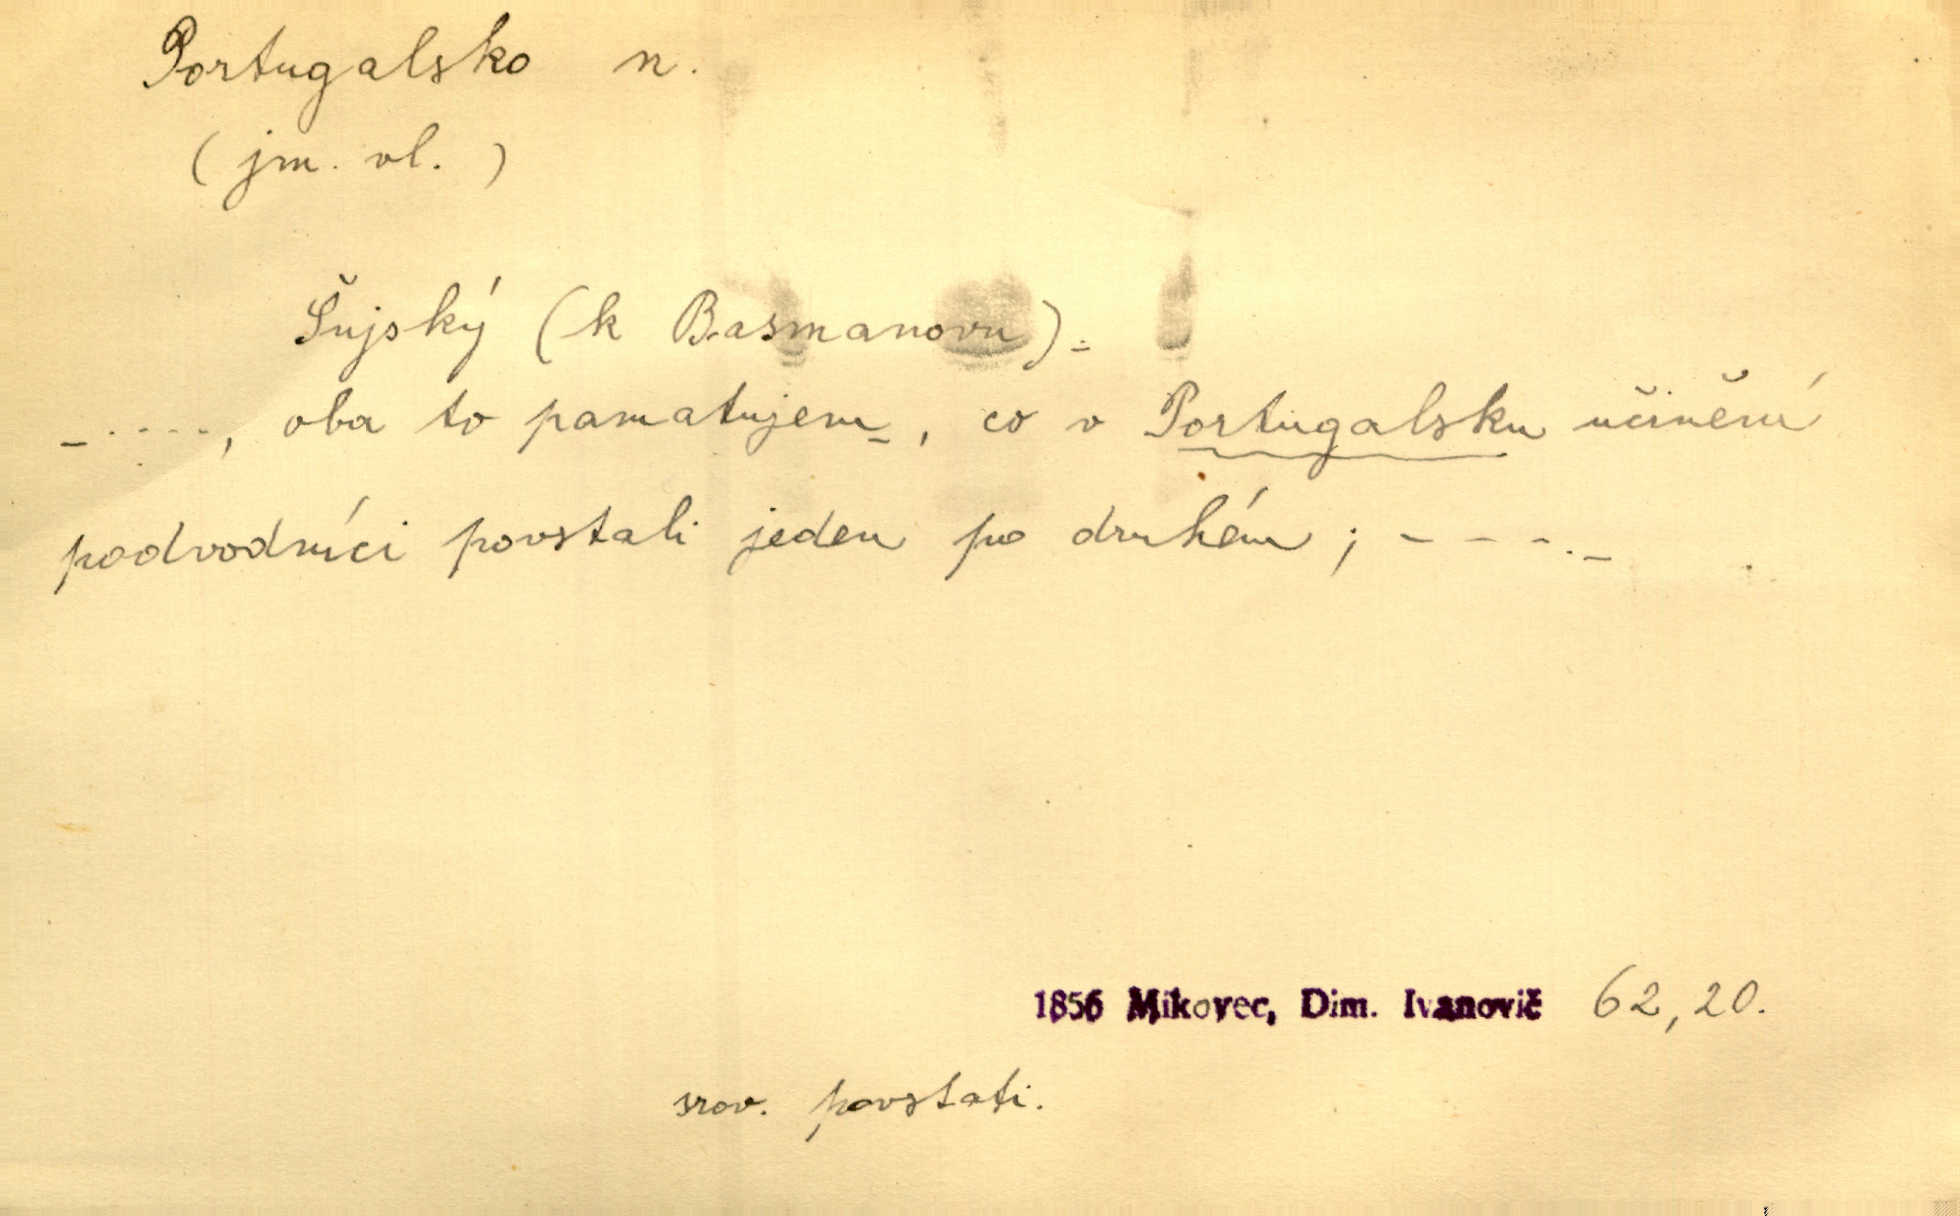 Portugalsko n.
(jm. vl.)
Šujský (k Basmanovu).
- . . . . , oba to pamatujem, co v Portugalsku učinění
podvodníci povstali jeden po druhém; - - - . -
1856 Mikovec, Dim. Ivanovič 62, 20.
srov. povstati.